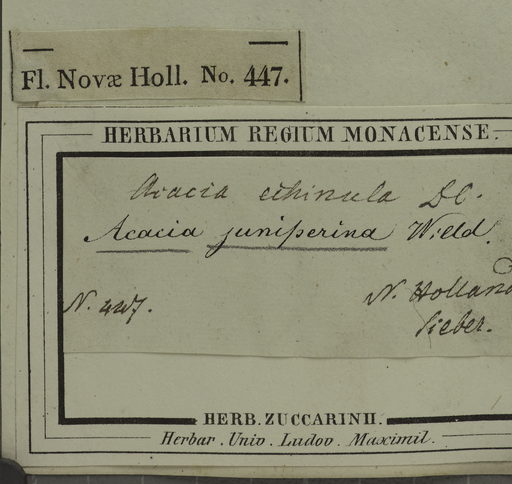 Fl. Novæ Holl. No. 447.
HERBARIUM REGIUM MONACENSE.
Acacia echinula DC.
Acacia juniperina Willd.
N. Holland
N. 447.
Sieber.
HERB. ZUCCARINII.
Herbar. Univ. Ludov. Maximil.